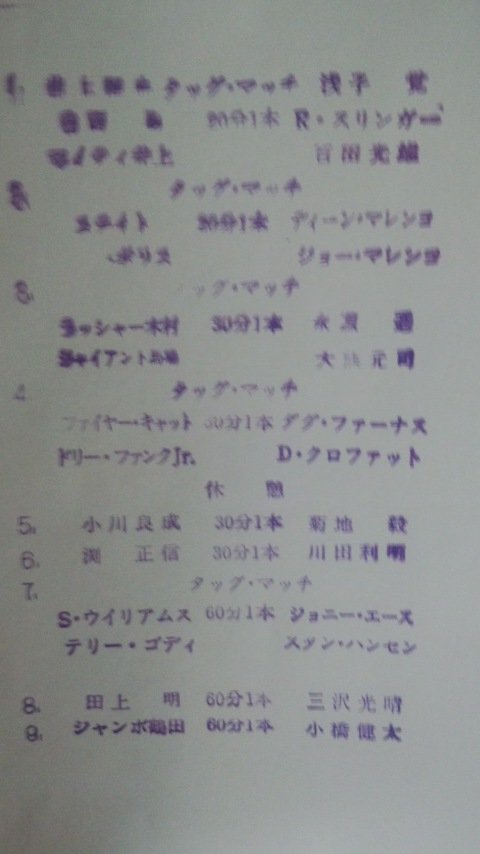 タッグ・マッチ
20分1本 R・スリンガー
マイティ井上 百田光雄
タッグ・マッチ
20分1本 ディーン・マレンコ
ジョー・マレンコ
3. ッグ・マッチ
ラッシャー木村 30分1本 永源 遥
ジャイアント馬場 大熊元司
4. タッグ・マッチ
ファイヤー・キャット 30分1本 ダグ・ファーナス
ドリー・ファンクJr. D・クロファット
休 憩
5. 小川良成 30分1本 菊地 毅
6. 渕 正信 30分1本 川田利明
7. タッグ・マッチ
S・ウイリアムス 60分1本 ジョニー・エース
テリー・ゴディ スタン・ハンセン
8. 田上 明 60分1本 三沢光晴
9. ジャンボ鶴田 60分1本 小橋健太